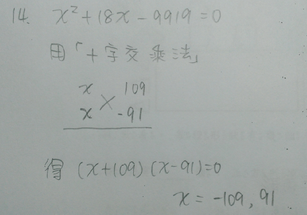 14. x²+18x-9919=0
用「十字交乘法」
x 109
x -91
得 (x+109)(x-91)=0
x = -109, 91